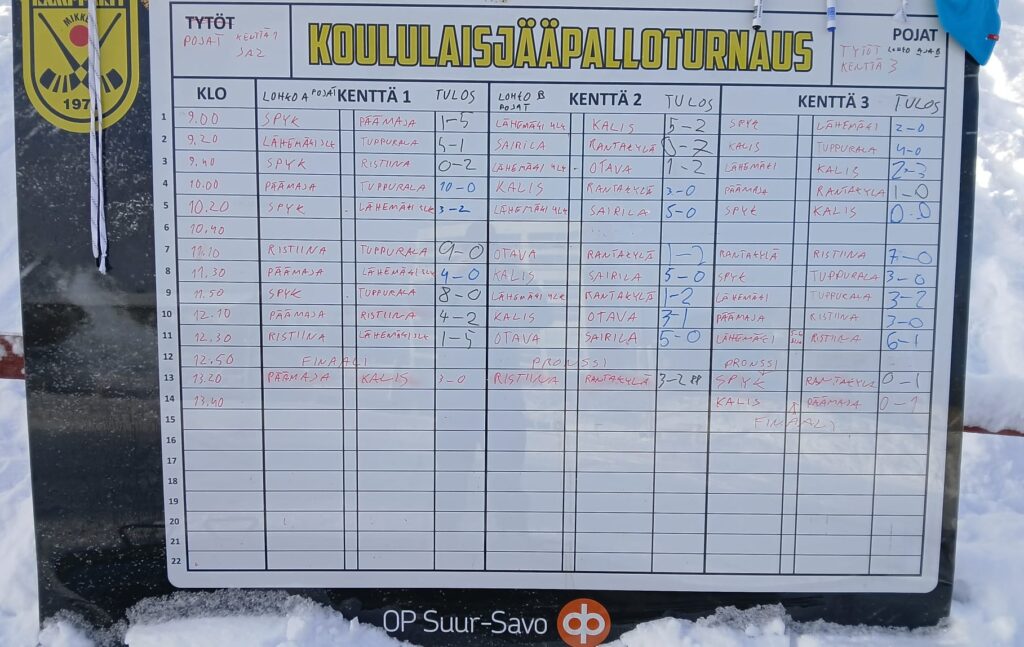 MIKKE
197
TYTÖT
POJAT KENTTÄ 1
JA 2
KOULULAISJÄÄPALLOTURNAUS
POJAT
TYTÖT LOHKO
KENTTÄ 3
KLO LOHKO A POJAT KENTTÄ 1 TULOS LOHKO B POJAT KENTTÄ 2 TULOS KENTTÄ 3 TULOS
1 9.00 SPYK PÄÄMAJA 1-5 LÄHEMÄKI YLK KALIS 5-2 SPYK LÄHEMÄKI 2-0
2 9.20 LÄHEMÄKI SLK TUPPURALA 5-1 SAIRILA RANTAKYLÄ 0-7 KALIS TUPPURALA 4-0
3 9.40 SPYK RISTIINA 0-2 LÄHEMÄKI YLK OTAVA 1-2 LÄHEMÄKI KALIS 2-3
4 10.00 PÄÄMAJA TUPPURALA 10-0 KALIS RANTAKYLÄ 3-0 PÄÄMAJA RANTAKYLÄ 1-0
5 10.20 SPYK LÄHEMÄKI SLK 3-2 LÄHEMÄKI YLK SAIRILA 5-0 SPYK KALIS 0-0
6 10.40
7 11.10 RISTIINA TUPPURALA 9-0 OTAVA RANTAKYLÄ 1-2 RANTAKYLÄ RISTIINA 7-0
8 11.30 PÄÄMAJA LÄHEMÄKI SLK 4-0 KALIS SAIRILA 5-0 SPYK TUPPURALA 3-0
9 11.50 SPYK TUPPURALA 8-0 LÄHEMÄKI YLK RANTAKYLÄ 1-2 LÄHEMÄKI TUPPURALA 3-2
10 12.10 PÄÄMAJA RISTIINA 4-2 KALIS OTAVA 3-1 PÄÄMAJA RISTIINA 3-0
11 12.30 RISTIINA LÄHEMÄKI SLK 1-5 OTAVA SAIRILA 5-0 LÄHEMÄKI RISTIINA 6-1
12 12.50 FINAALI PRONSSI PRONSSI
13 13.20 PÄÄMAJA KALIS 3-0 RISTIINA RANTAKYLÄ 3-2 SPYK RANTAKYLÄ 0-1
14 13.40 KALIS PÄÄMAJA 0-1
15 FINAALI
16
17
18
19
20
21
22
OP Suur-Savo